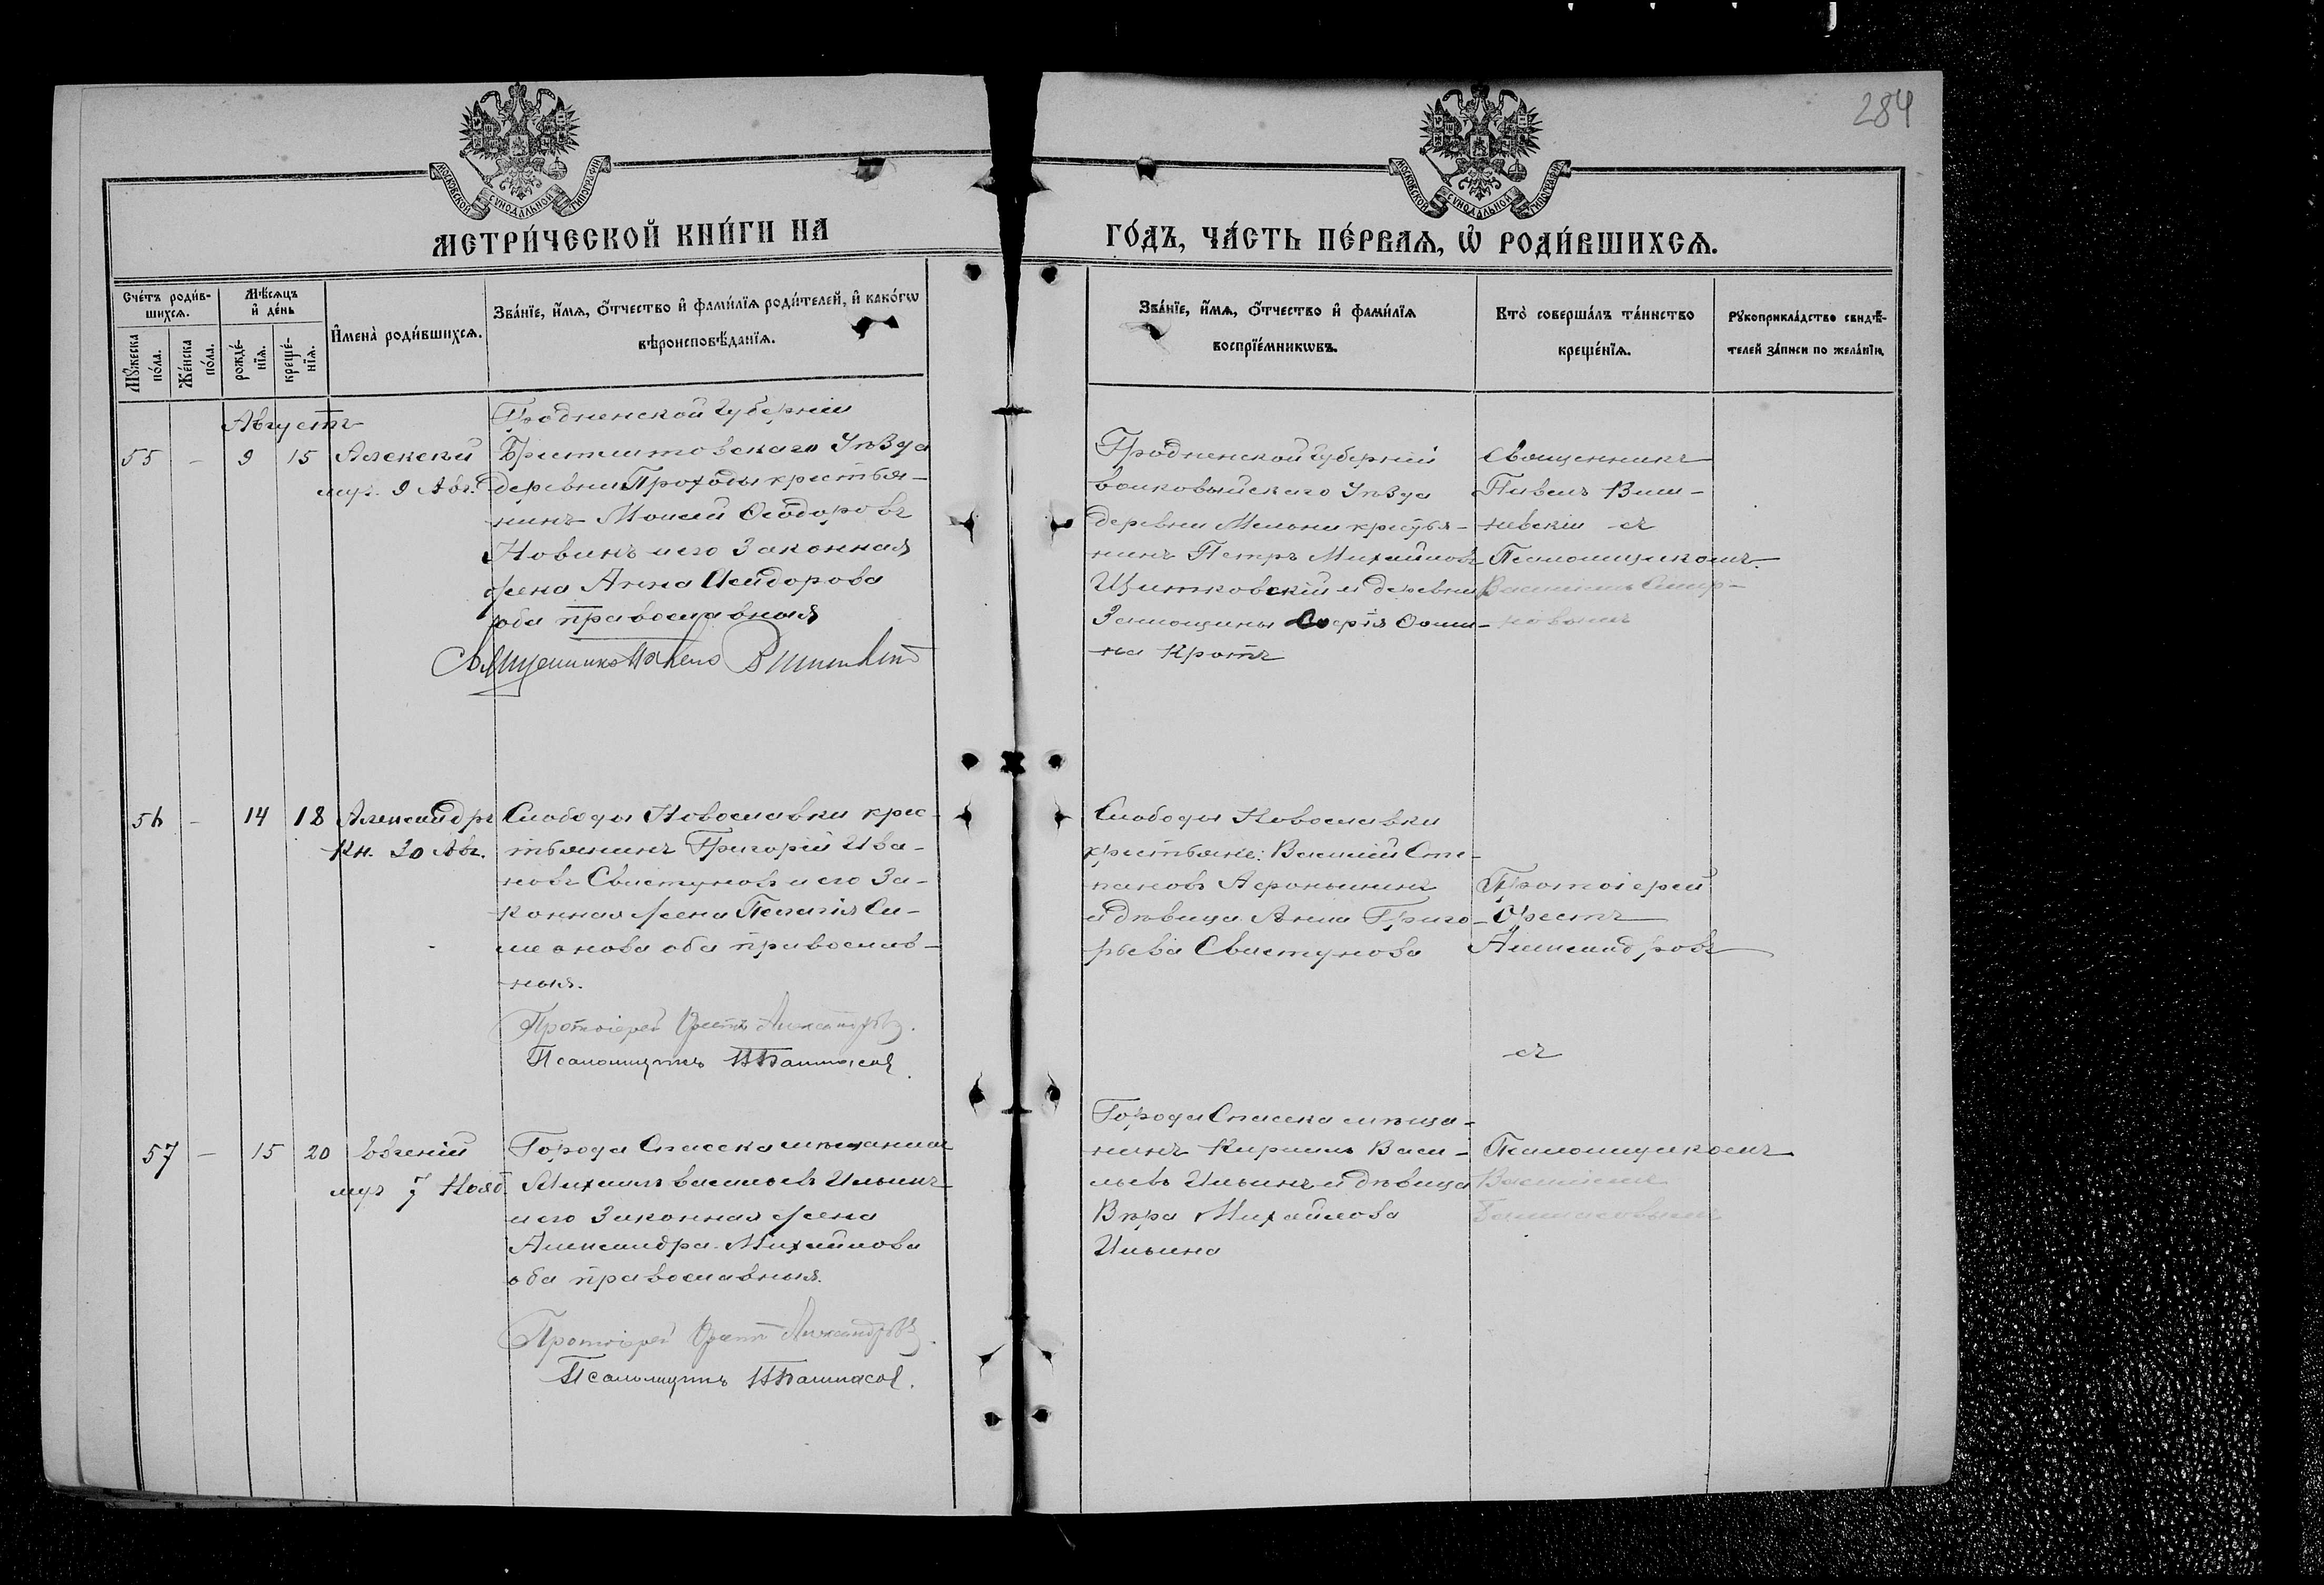 284
МОСКОВСКОЙ СѴНОДАЛЬНОЙ ТИПОГРАФІИ
МОСКОВСКОЙ СѴНОДАЛЬНОЙ ТИПОГРАФІИ
МЕТРИ́ЧЕСКОЙ КНИ́ГИ НА
ГО́ДЪ, ЧА́СТЬ ПЕ́РВАѦ, Ѡ҆ РОДИ́ВШИХСѦ.
Сче́тъ роди́в-
шихсѧ.
Мꙋ́жеска по́ла.
Же́нска по́ла.
Мѣ́сѧцъ
и҆ де́нь
рожде́-
нїѧ.
креще́-
нїѧ.
И҆мена̀ роди́вшихсѧ.
Зва́нїе, и҆́мѧ, ѻ҆́тчество и҆ фами́лїѧ роди́телей, и҆ како́гѡ
вѣроисповѣ́данїѧ.
Зва́нїе, и҆́мѧ, ѻ҆́тчество и҆ фами́лїѧ
воспрїе́мникѡвъ.
Кто̀ соверша́лъ та́инство
креще́нїѧ.
Рꙋкоприкла́дство свидѣ́-
телей за́писи по жела́нїю.
Августъ
55 - 9 15 Алексей
муч. 9 Авг.
Гродненской Губерніи
Брестлитовскаго Уѣзда
деревни Проходы крестья-
нинъ Моисей Ѳеодоровъ
Новикъ и его Законная
жена Анна Исидорова
оба православныя
Священникъ Павелъ Вишневскій
Гродненской Губерніи
Волковыйскаго Уѣзда
деревни Мельни крестья-
нинъ Петръ Михайловъ
Щитковскій и деревни
Замощины Софія Осии-
на Кротъ
Священникъ
Павелъ Виш-
невскій съ
Псаломщикомъ
Василіемъ Смир-
новымъ
56 - 14 18 Александръ
Кн. 30 Авг.
Слободы Новославки крес-
тьянинъ Григорій Ива-
новъ Свистуновъ и его За-
конная жена Пелагія Си-
меонова оба православ-
ныя.
Протоіерей Орестъ Александровъ.
Псаломщикъ В Башмасов
Слободы Новославки
крестьяне: Василій Сте-
пановъ Афонькинъ
и дѣвица Анна Григо-
рьева Свистунова
Протоіерей
Орестъ
Александровъ
съ
57 - 15 20 Евгеній
муч 7 Нояб
Города Спасска мѣщанинъ
Михаилъ Васильевъ Ильинъ
и его Законная жена
Александра Михайлова
оба православныя.
Протоіерей Орестъ Александровъ.
Псаломщикъ В Башмасов.
Города Спасска мѣща-
нинъ Кириллъ Васи-
льевъ Ильинъ и дѣвица
Вѣра Михайлова
Ильина
Псаломщикомъ
Василіемъ
Башмасовымъ